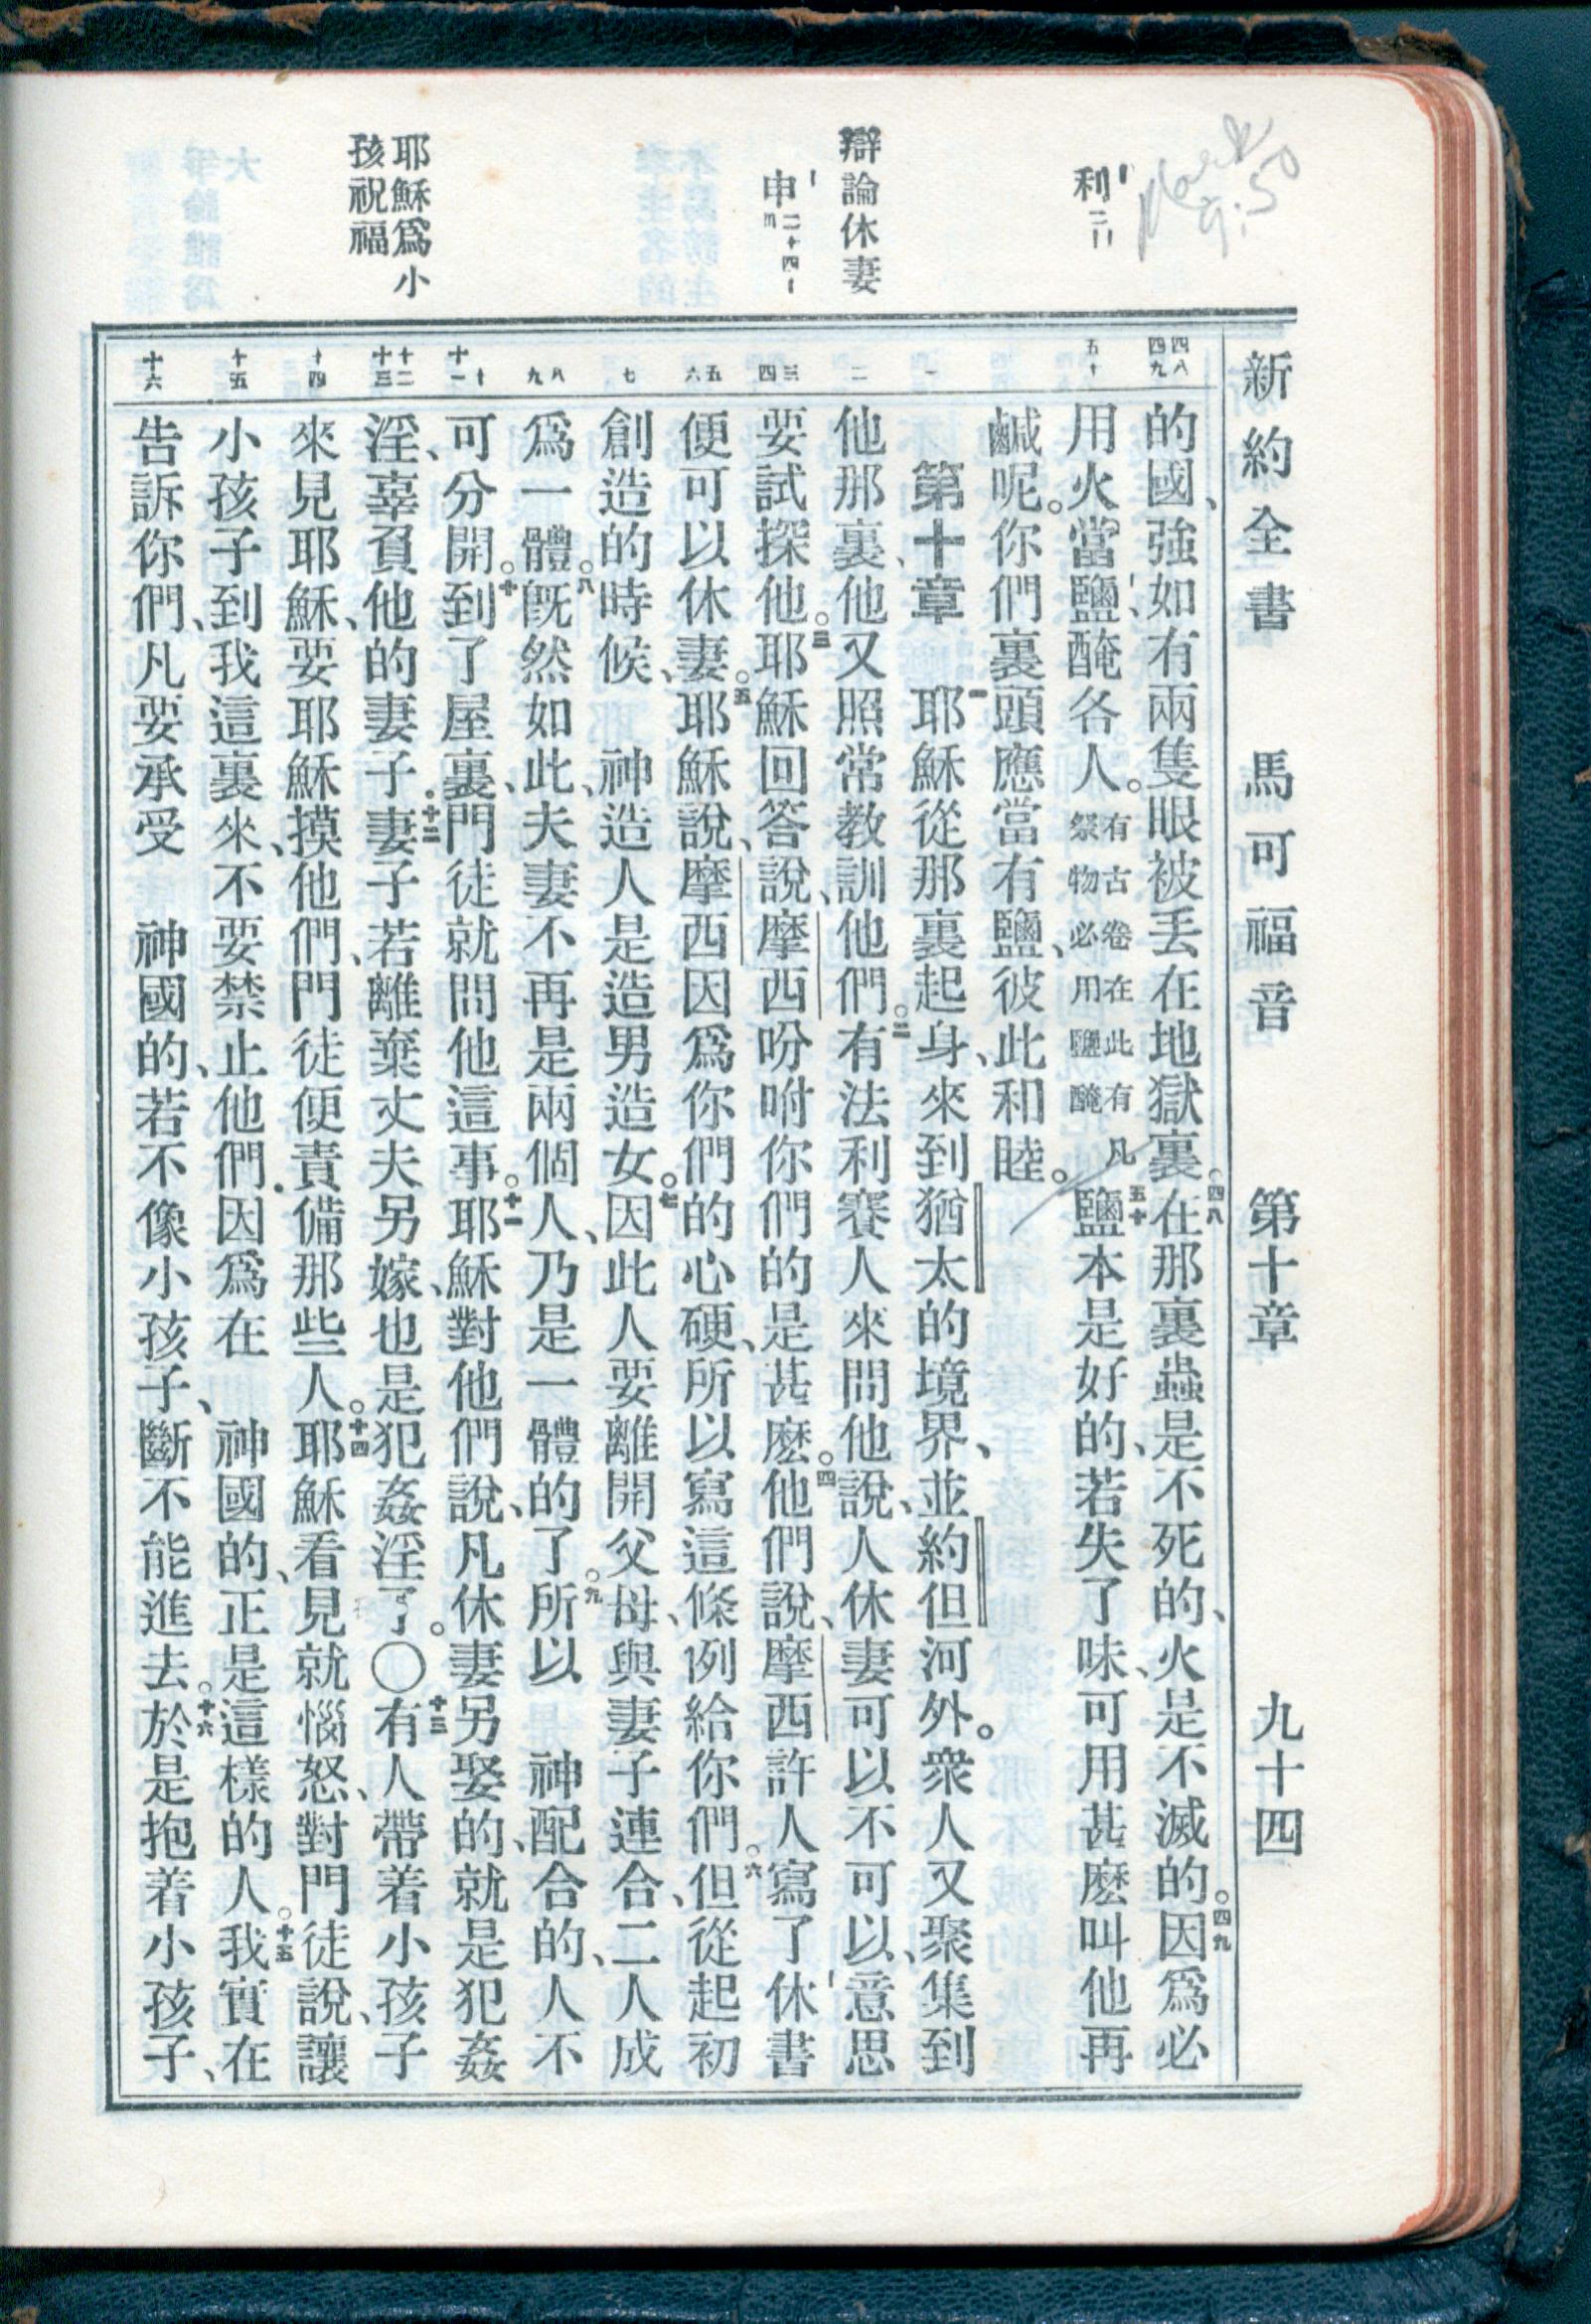 新約全書 馬可福音 第十章 九十四
Mark 9:50
利二
辯論休妻
申二十四
耶穌爲小
孩祝福
四八
四九
五十
一
二
三
四
五
六
七
八
九
十
十一
十二
十三
十四
十五
十六
的國、強如有兩隻眼被丟在地獄裏。四八在那裏蟲是不死的、火是不滅的。四九因爲必
用火當鹽醃各人。有古卷在此有凡祭物必用鹽醃五十鹽本是好的、若失了味、可用甚麽叫他再
鹹呢。你們裏頭應當有鹽、彼此和睦。
第十章 一耶穌從那裏起身、來到猶太的境界、並約但河外。衆人又聚集到
他那裏、他又照常教訓他們。二有法利賽人來問他說、人休妻可以不可以、意思
要試探他。三耶穌回答說、摩西吩咐你們的是甚麽。四他們說、摩西許人寫了休書
便可以休妻。五耶穌說、摩西因爲你們的心硬、所以寫這條例給你們。六但從起初
創造的時候、 神造人是造男造女。七因此人要離開父母、與妻子連合、二人成
爲一體。八旣然如此、夫妻不再是兩個人、乃是一體的了。九所以 神配合的、人不
可分開。十到了屋裏、門徒就問他這事。十一耶穌對他們說、凡休妻另娶的、就是犯姦
淫、辜負他的妻子.十二妻子若離棄丈夫另嫁、也是犯姦淫了。○十三有人帶着小孩子
來見耶穌、要耶穌摸他們、門徒便責備那些人。十四耶穌看見就惱怒、對門徒說、讓
小孩子到我這裏來、不要禁止他們.因爲在 神國的、正是這樣的人。十五我實在
告訴你們、凡要承受 神國的、若不像小孩子、斷不能進去。十六於是抱着小孩子、